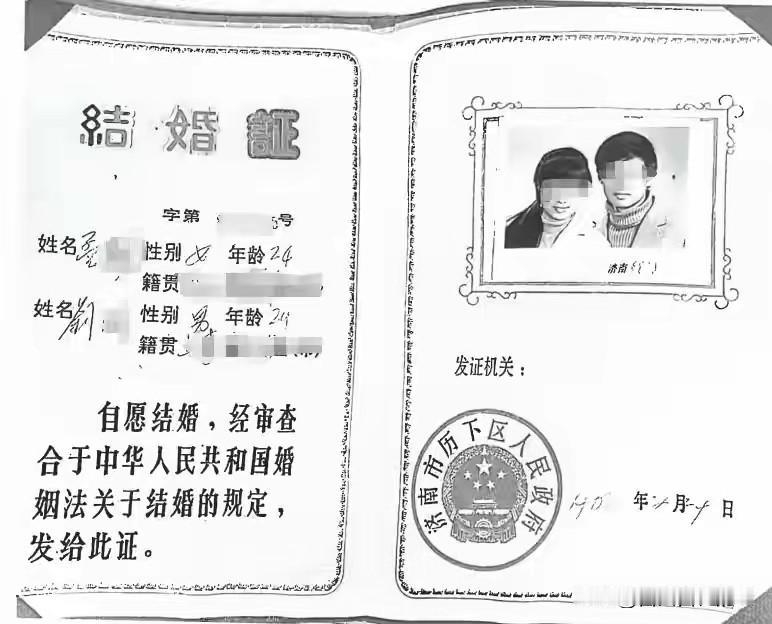 結婚証
字第 号
姓名 性别 女 年龄 24
籍贯
姓名 劉 性别 男 年龄 24
籍贯
自愿结婚，经审查
合于中华人民共和国婚
姻法关于结婚的规定，
发给此证。
济南
发证机关：
济南市历下区人民政府
年 月 日